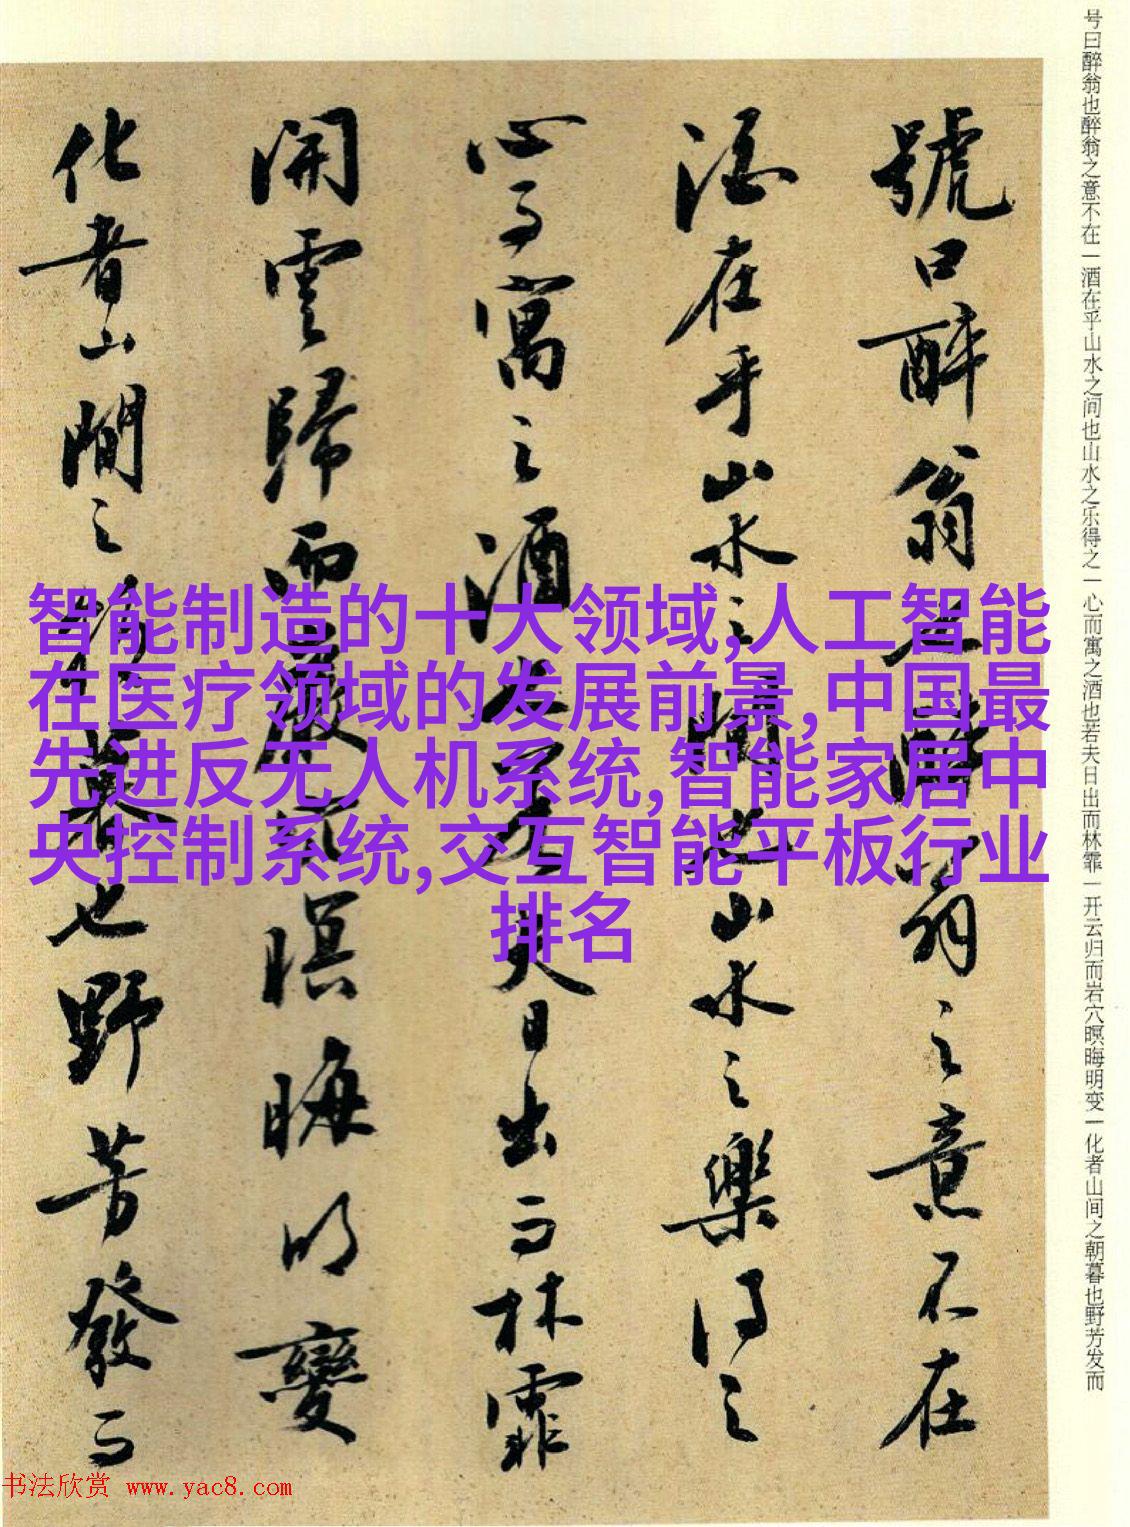 号曰醉翁也醉翁之意不在一酒在乎山水之间也山水之乐得之一心而寓之酒也若夫日出而林霏一开云归而岩穴暝晦明变一化者山间之朝暮也野芳发而
號曰醉翁也醉翁之意不在
酒在乎山水之間也山水之樂得之
心而寓之酒也若夫日出而林霏
開雲歸而巖穴暝晦明變
化者山間之朝暮也野芳發而
智能制造的十大领域,人工智能
在医疗领域的发展前景,中国最
先进反无人机系统,智能家居中
央控制系统,交互智能平板行业
排名
书法欣赏 www.yac8.com